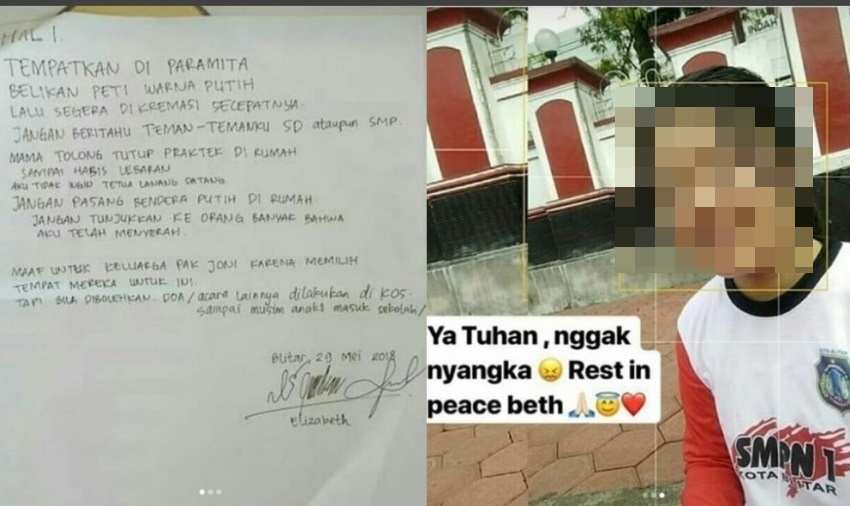 HAL 1.
TEMPATKAN DI PARAMITA
BELIKAN PETI WARNA PUTIH
LALU SEGERA DI KREMASI SECEPATNYA.
JANGAN BERITAHU TEMAN-TEMANKU SD ataupun SMP.
MAMA TOLONG TUTUP PRAKTEK DI RUMAH
SAMPAI HABIS LEBARAN
AKU TIDAK INGIN TETUA LANANG DATANG.
JANGAN PASANG BENDERA PUTIH DI RUMAH.
JANGAN TUNJUKKAN KE ORANG BANYAK BAHWA
AKU TELAH MENYERAH.
MAAF UNTUK KELUARGA PAK JONI KARENA MEMILIH
TEMPAT MEREKA UNTUK INI.
TAPI BILA DIBOLEHKAN. DOA/acara lainnya dilakukan di KOS.
sampai musim anak2 masuk sekolah/
Blitar, 29 Mei 2018
Elizabeth
INDAH
Ya Tuhan , nggak
nyangka 😖 Rest in
peace beth 🙏🏻😇❤️
SMPN 1
KOTA BLITAR